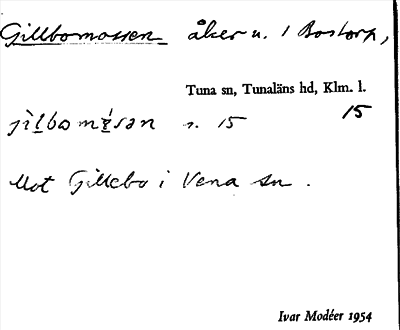 Gillbomossen åker u. 1 Bostorp,
Tuna sn, Tunaläns hd, Klm. l.
15
s. 15
Mot Gillebo i Vena sn.
Ivar Modéer 1954